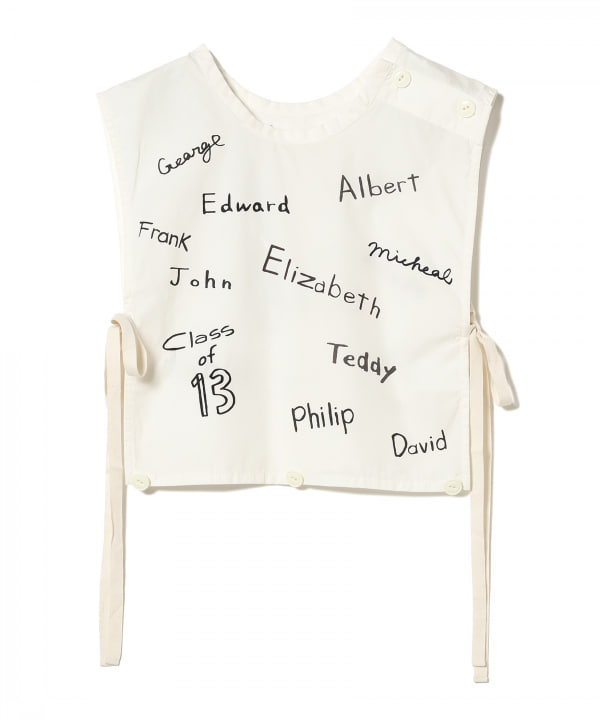 George
Albert
Edward
Frank
Micheal
Elizabeth
John
Class
of
13
Teddy
Philip
David